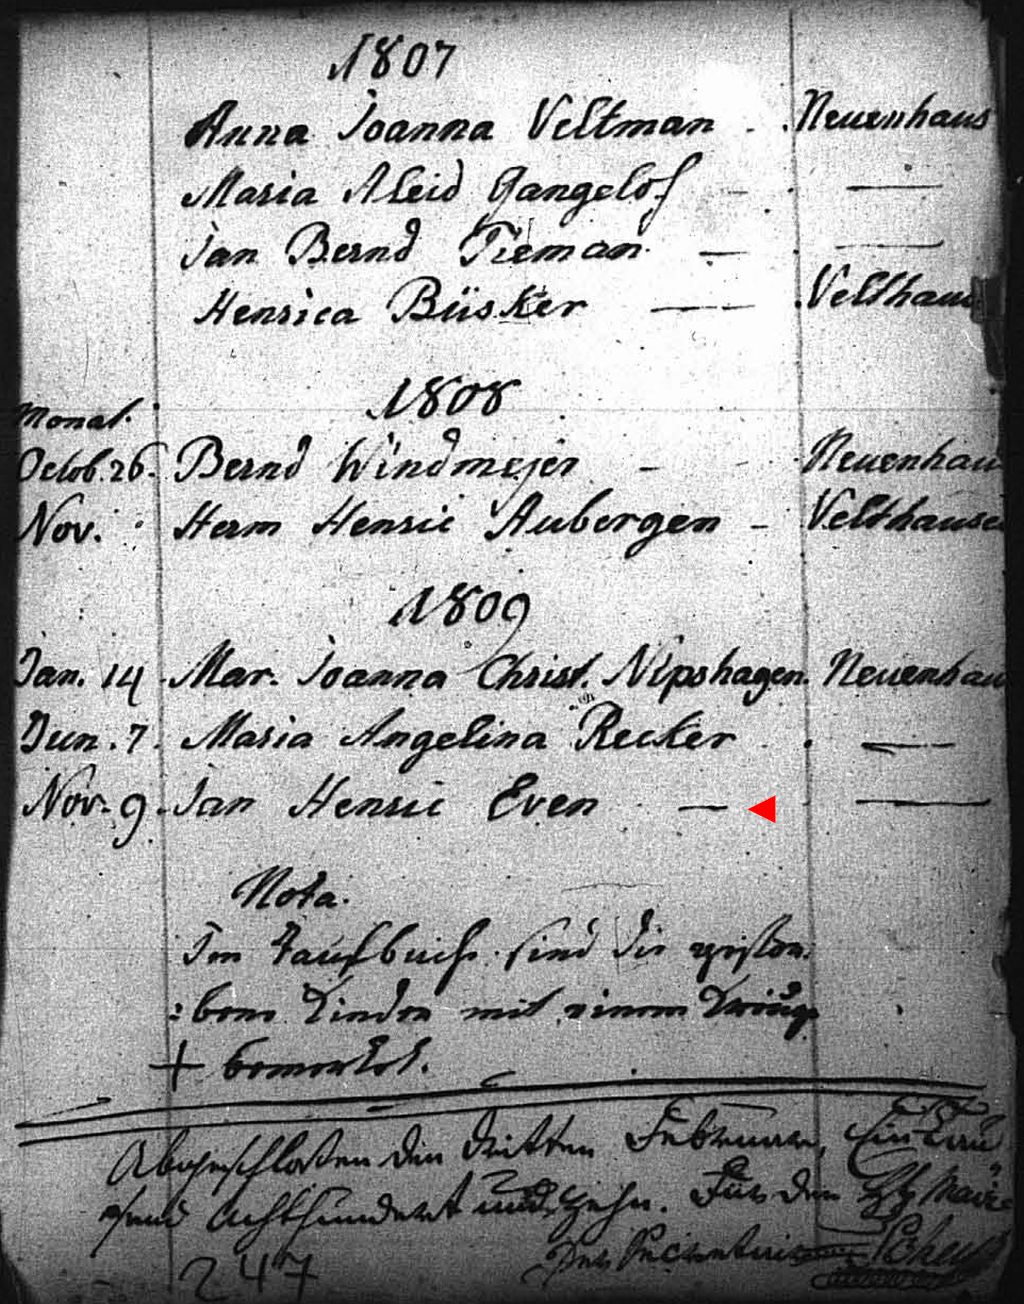 1807
Anna Joanna Veltman . . Neuenhaus
Maria Aleid Gangelof - . —
Jan Bernd Tieman — . —
Henrica Büsker — . Velthaus
1808
Monat.
Octob. 26. Bernd Windmejer - - Neuenhau
Nov. Herm Henric Aubergen - Velthause
1809
Jan. 14 Mar. Joanna Christ. Nipshagen. Neuenhau
Jun. 7. Maria Angelina Recker . . —
Nov. 9. Jan Henric Even — —
Nota.
Im Taufbuche sind die gestor
: bene Kinder mit einem Kreuz
+ bemerket.
Abgeschlossen den dritten Februar, Ein Tau
send Achthundert und zehn. Für den Maire
Der
247